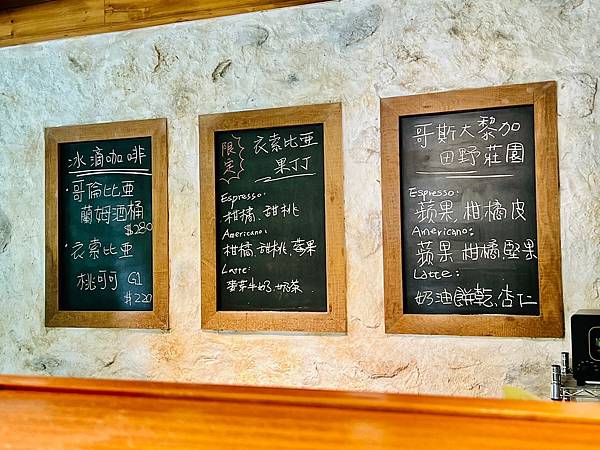 冰滴咖啡
·哥倫比亞
蘭姆酒桶
$280
·衣索比亞
桃可可 G1
$220
限定
衣索比亞
果丁丁
Espresso:
柑橘、甜桃
Americano:
柑橘、甜桃、莓果
Latte:
麥芽牛奶、奶茶
哥斯大黎加
田野莊園
Espresso:
蘋果,柑橘皮
Americano:
蘋果,柑橘,堅果
Latte:
奶油餅乾、杏仁